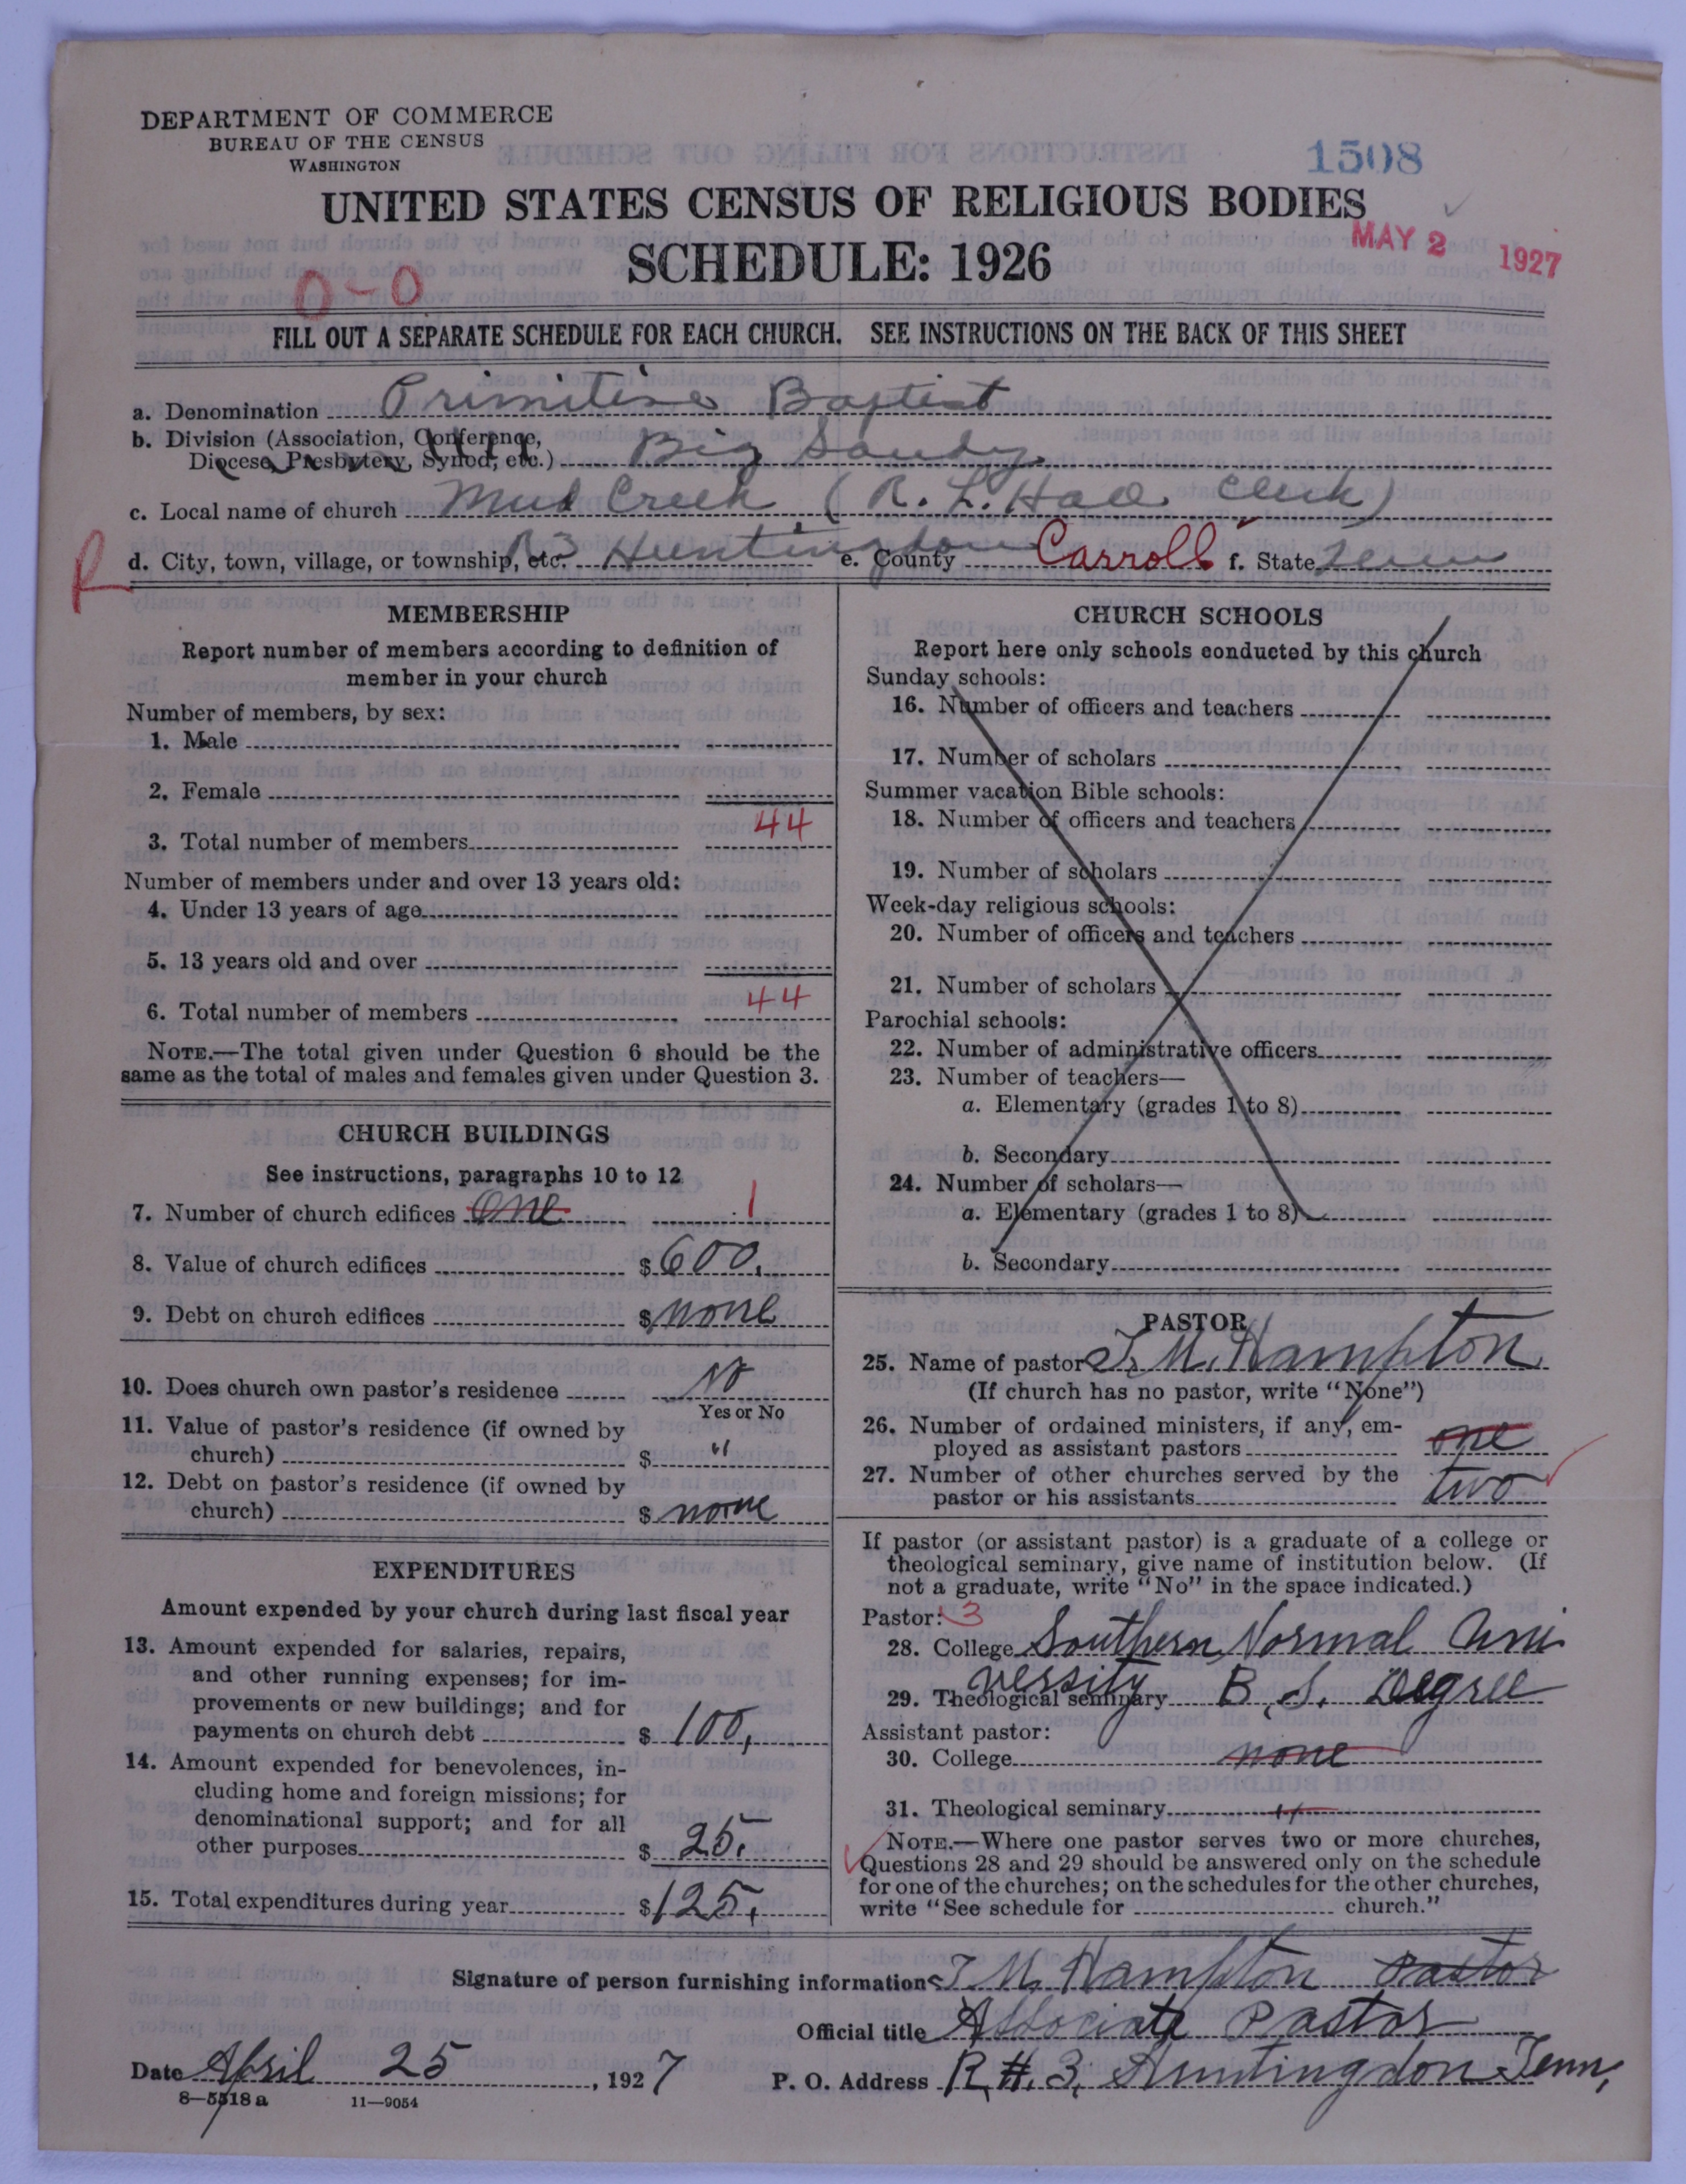 DEPARTMENT OF COMMERCE
BUREAU OF THE CENSUS
WASHINGTON
1508
UNITED STATES CENSUS OF RELIGIOUS BODIES
SCHEDULE: 1926
MAY 2 1927
0-0
FILL OUT A SEPARATE SCHEDULE FOR EACH CHURCH. SEE INSTRUCTIONS ON THE BACK OF THIS SHEET
a. Denomination Primitive Baptist
b. Division (Association, Conference,
Diocese, Presbytery, Synod, etc.) Big Sandy
c. Local name of church Mud Creek (R. L. Hall Clerk)
R d. City, town, village, or township, etc. R3 Huntingdon e. County Carroll f. State Tenn
MEMBERSHIP
Report number of members according to definition of
member in your church
Number of members, by sex:
1. Male
2. Female
3. Total number of members 44
Number of members under and over 13 years old:
4. Under 13 years of age
5. 13 years old and over
6. Total number of members 44
NOTE.—The total given under Question 6 should be the
same as the total of males and females given under Question 3.
CHURCH BUILDINGS
See instructions, paragraphs 10 to 12
7. Number of church edifices one 1
8. Value of church edifices $ 600.
9. Debt on church edifices $ none
10. Does church own pastor's residence No
Yes or No
11. Value of pastor's residence (if owned by
church) $ "
12. Debt on pastor's residence (if owned by
church) $ none
EXPENDITURES
Amount expended by your church during last fiscal year
13. Amount expended for salaries, repairs,
and other running expenses; for im-
provements or new buildings; and for
payments on church debt $ 100,
14. Amount expended for benevolences, in-
cluding home and foreign missions; for
denominational support; and for all
other purposes $ 25.
15. Total expenditures during year $ 125.
CHURCH SCHOOLS
Report here only schools conducted by this church
Sunday schools:
16. Number of officers and teachers
17. Number of scholars
Summer vacation Bible schools:
18. Number of officers and teachers
19. Number of scholars
Week-day religious schools:
20. Number of officers and teachers
21. Number of scholars
Parochial schools:
22. Number of administrative officers
23. Number of teachers—
a. Elementary (grades 1 to 8)
b. Secondary
24. Number of scholars—
a. Elementary (grades 1 to 8)
b. Secondary
PASTOR
25. Name of pastor T. M. Hampton
(If church has no pastor, write "None")
26. Number of ordained ministers, if any, em-
ployed as assistant pastors one
27. Number of other churches served by the
pastor or his assistants two
If pastor (or assistant pastor) is a graduate of a college or
theological seminary, give name of institution below. (If
not a graduate, write "No" in the space indicated.)
Pastor: 3
28. College Southern Normal Uni
versity
29. Theological seminary B. S. Degree
Assistant pastor:
30. College none
31. Theological seminary "
NOTE.—Where one pastor serves two or more churches,
Questions 28 and 29 should be answered only on the schedule
for one of the churches; on the schedules for the other churches,
write "See schedule for church."
Signature of person furnishing information T M. Hampton Pastor
Official title Associate Pastor
Date April 25, 1927 P. O. Address R.#.3, Huntingdon Tenn,
8—5518 a 11—9054